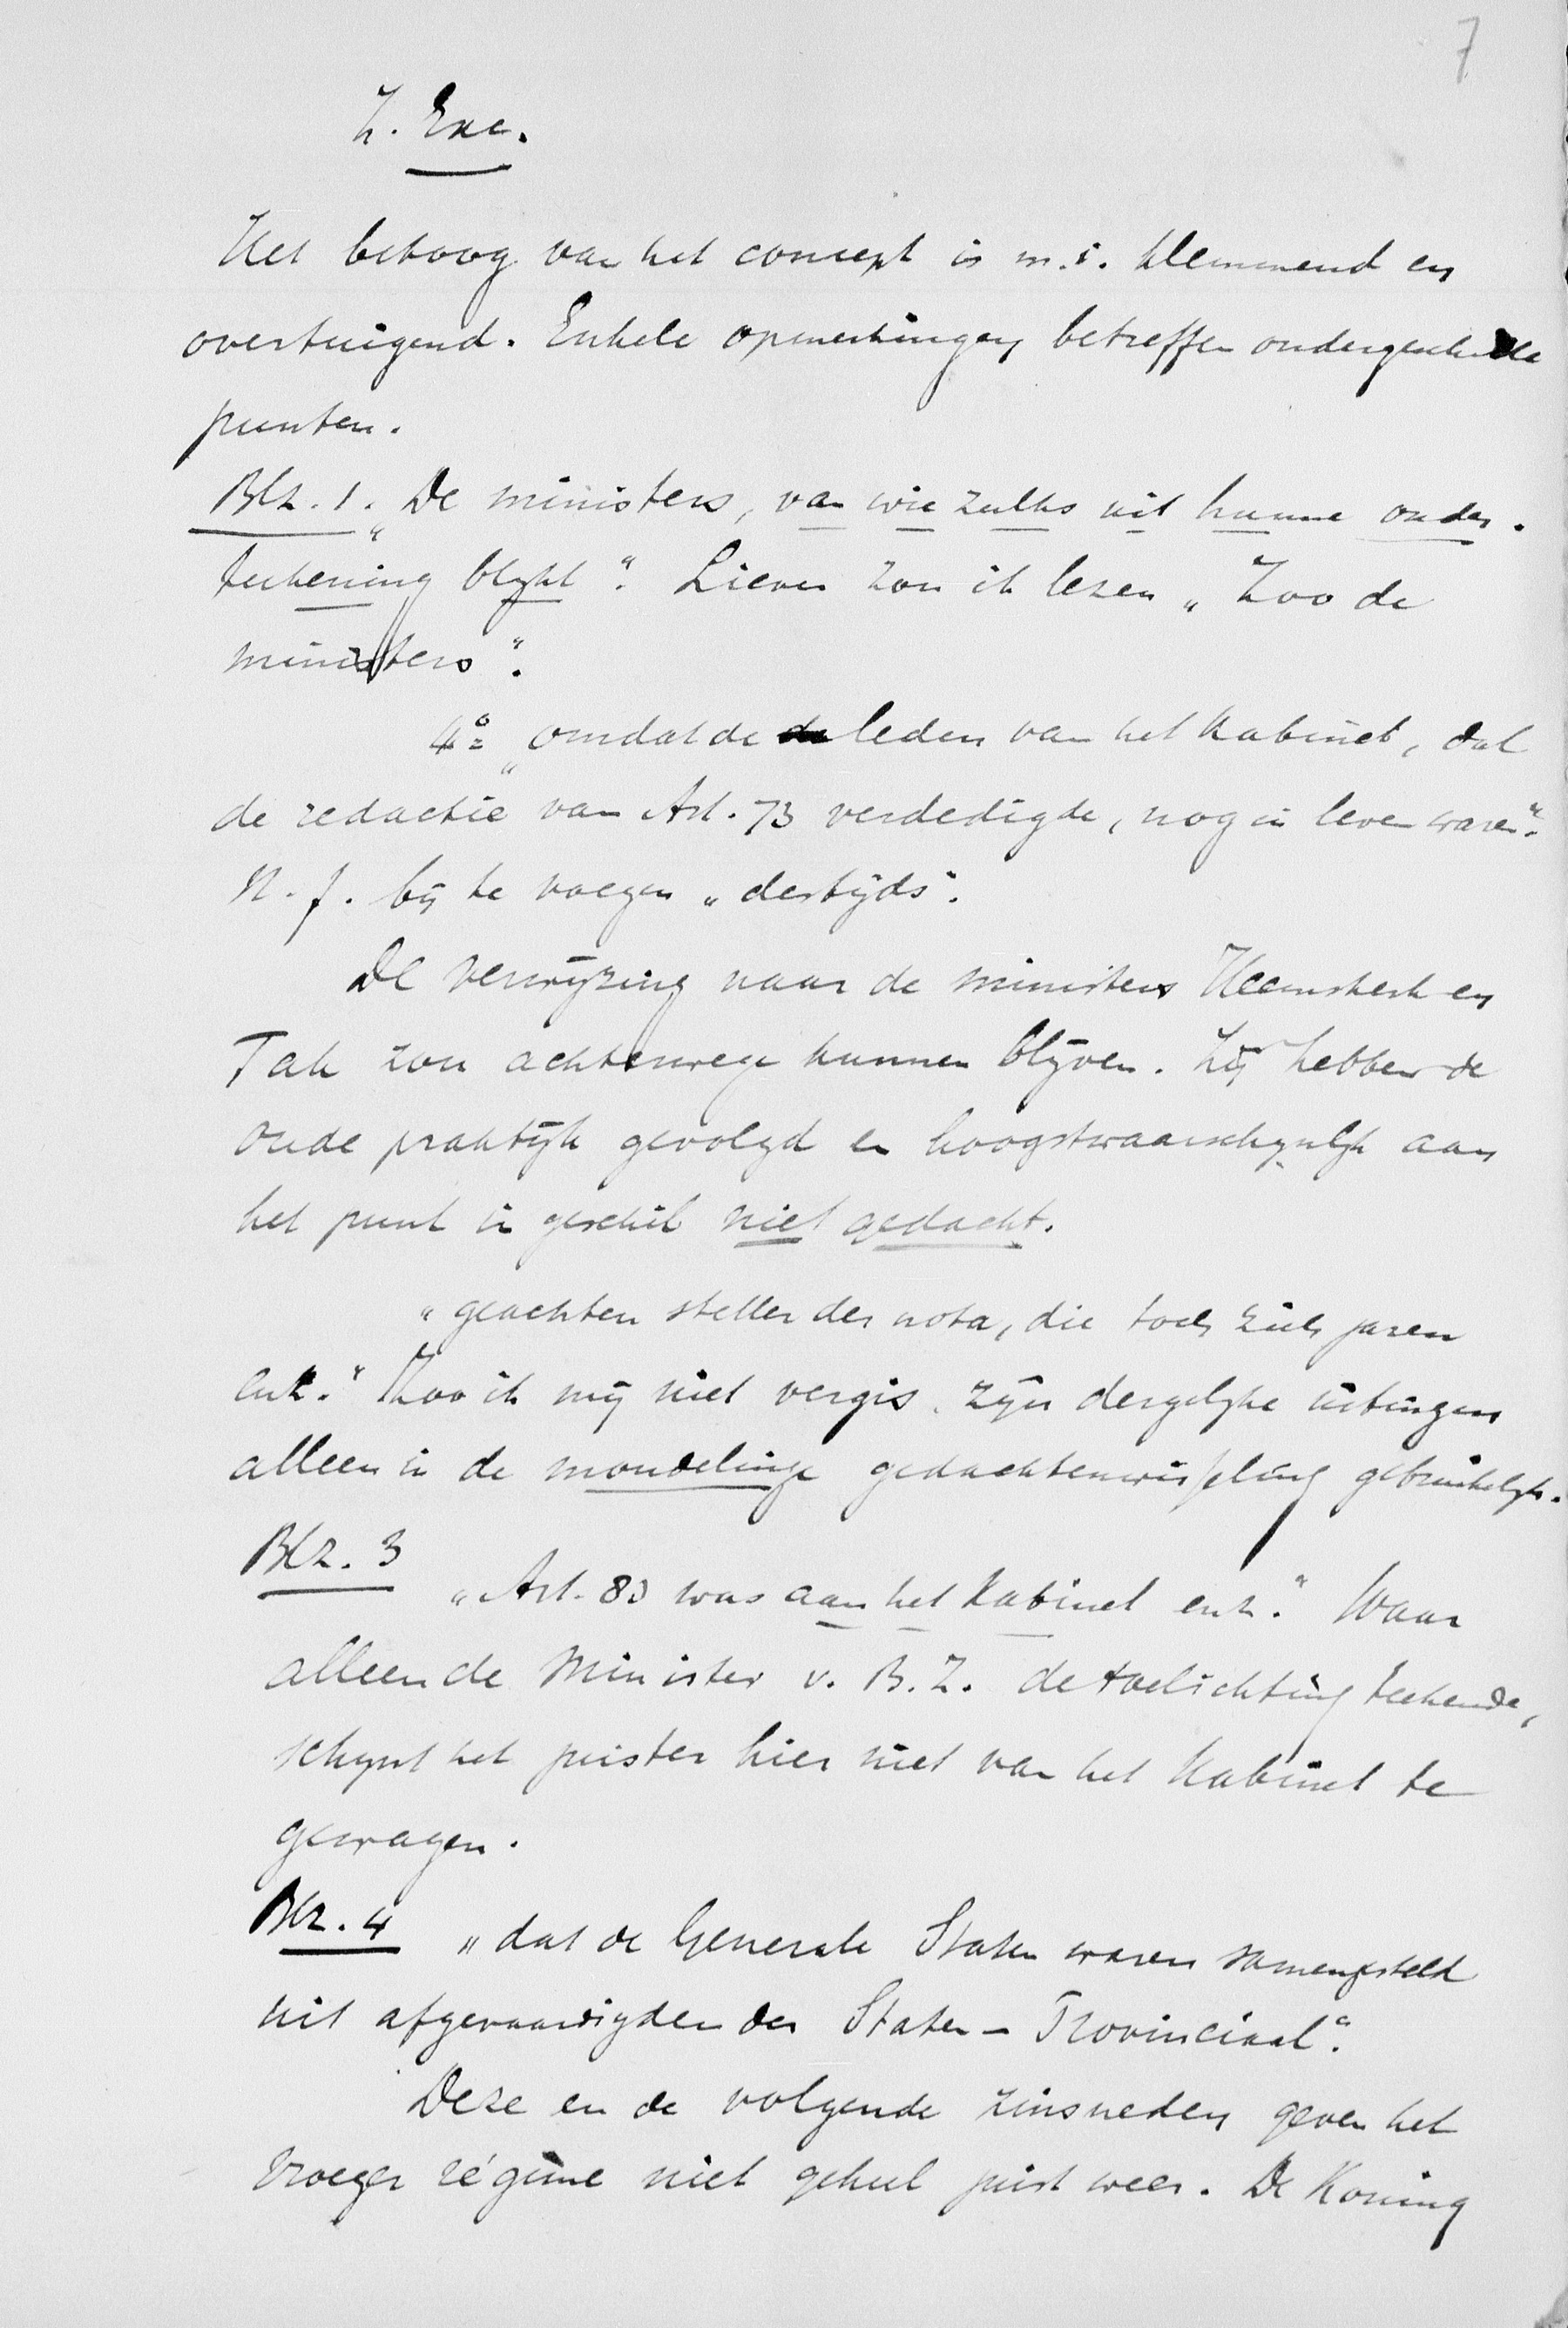 7
Z. Exc.
Het betoog van het concept is m.i. klemmend en
overtuigend. Enkele opmerkingen betreffen ondergeschikte
punten.
Blz. 1. „De ministers, van wie zulks uit hunne onder-
teekening blykt". Liever zou ik lezen „Zoo de
ministers".
4º „omdat de leden van het Kabinet, dat
de redactie van Art. 73 verdedigde, nog in leven waren".
N. f. bij te voegen „destijds".
De verwyzing naar de ministers Heemskerk en
Tak zou achterwege kunnen blijven. Zij hebben de
oude praktijk gevolgd en hoogstwaarschynlyk aan
het punt in geschil niet gedacht.
„geachten steller der nota, die toch zich jaren
enz." Zoo ik mij niet vergis, zijn dergelyke uitingen
alleen in de mondelinge gedachtenwisseling gebruikelyk.
Blz. 3
„Art. 80 was aan het Kabinet enz." Waar
alleen de Minister v. B. Z. de toelichting teekende,
schynt het juister hier niet van het Kabinet te
gewagen.
Blz. 4 „dat de Generale Staten waren samengesteld
uit afgevaardigden der Staten-Provinciaal".
Deze en de volgende zinsneden geven het
vroeger régime niet geheel juist weer. De Koning